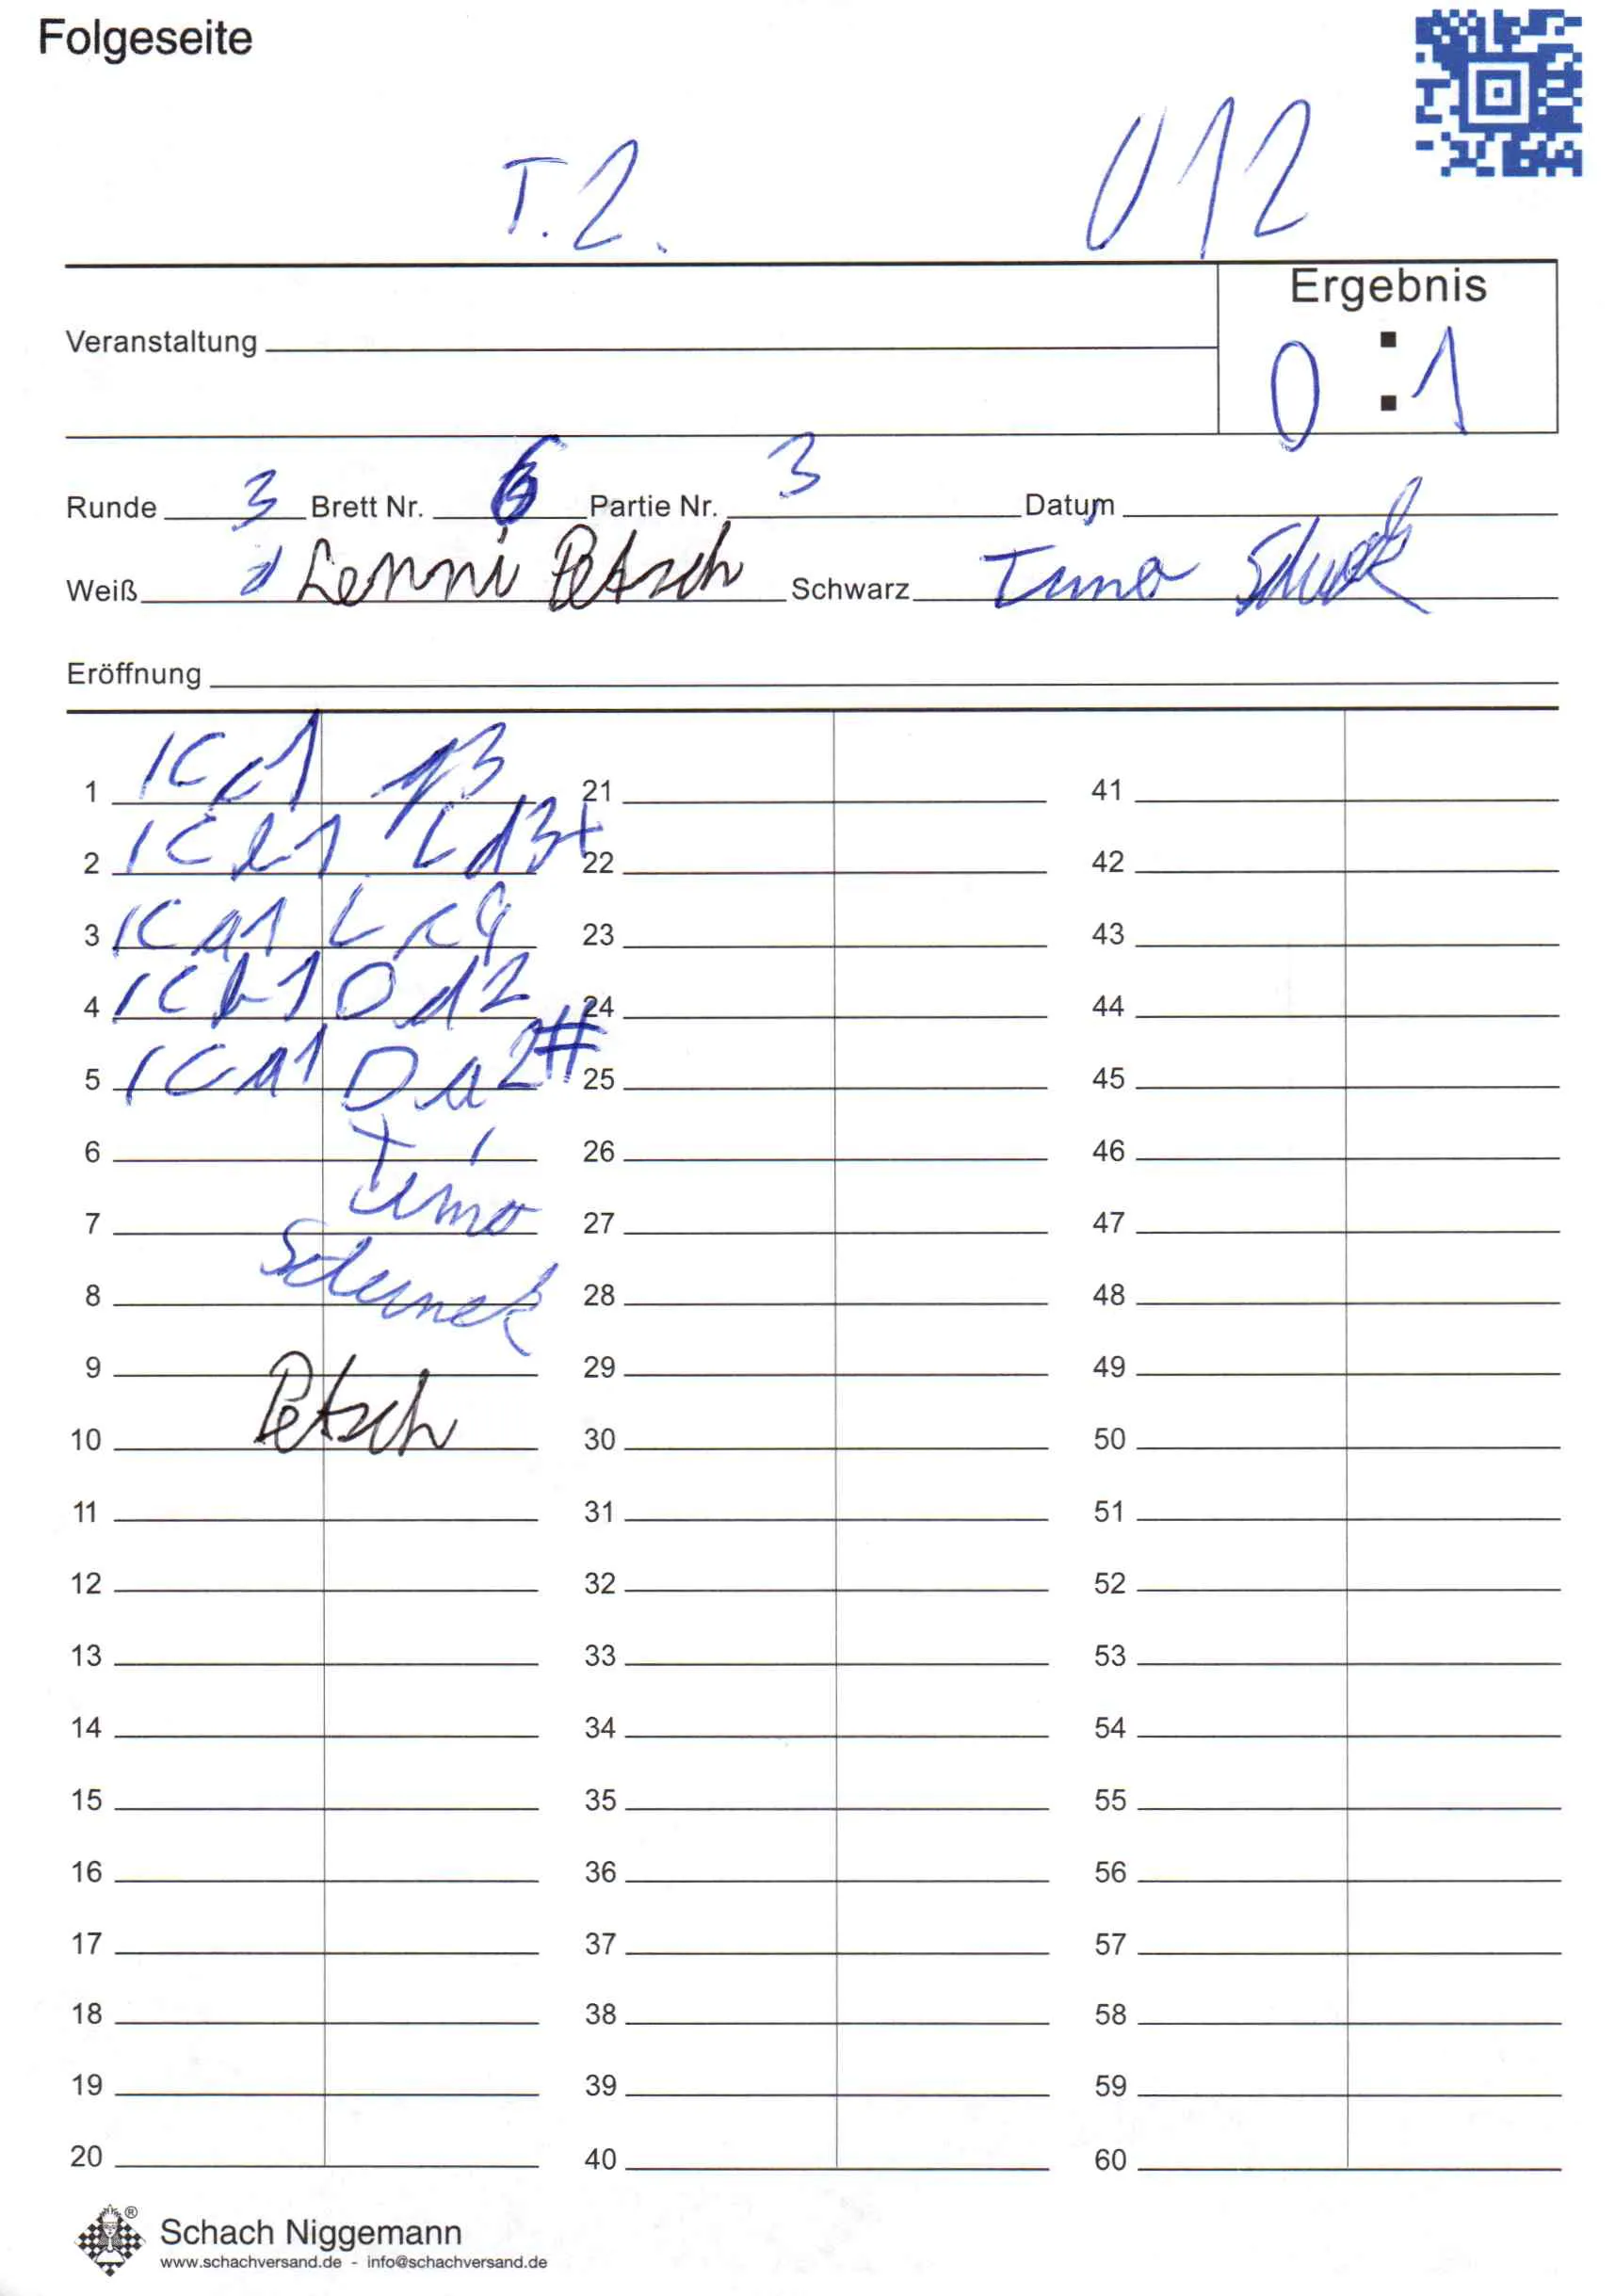 Folgeseite
T.2. U12
Ergebnis
Veranstaltung
0 : 1
Runde 3 Brett Nr. 6 Partie Nr. 3 Datum
Weiß Lenni Petsch Schwarz Timo
Eröffnung
1 Kc1 g3 21 41
2 Kb1 Ld3+ 22 42
3 Ka1 Lc4 23 43
4 Kb1 Dd2 24 44
5 Ka1 Da2# 25 45
6 26 46
Timo
7 27 47
8 28 48
9 29 49
Petsch
10 30 50
11 31 51
12 32 52
13 33 53
14 34 54
15 35 55
16 36 56
17 37 57
18 38 58
19 39 59
20 40 60
Schach Niggemann
www.schachversand.de - info@schachversand.de